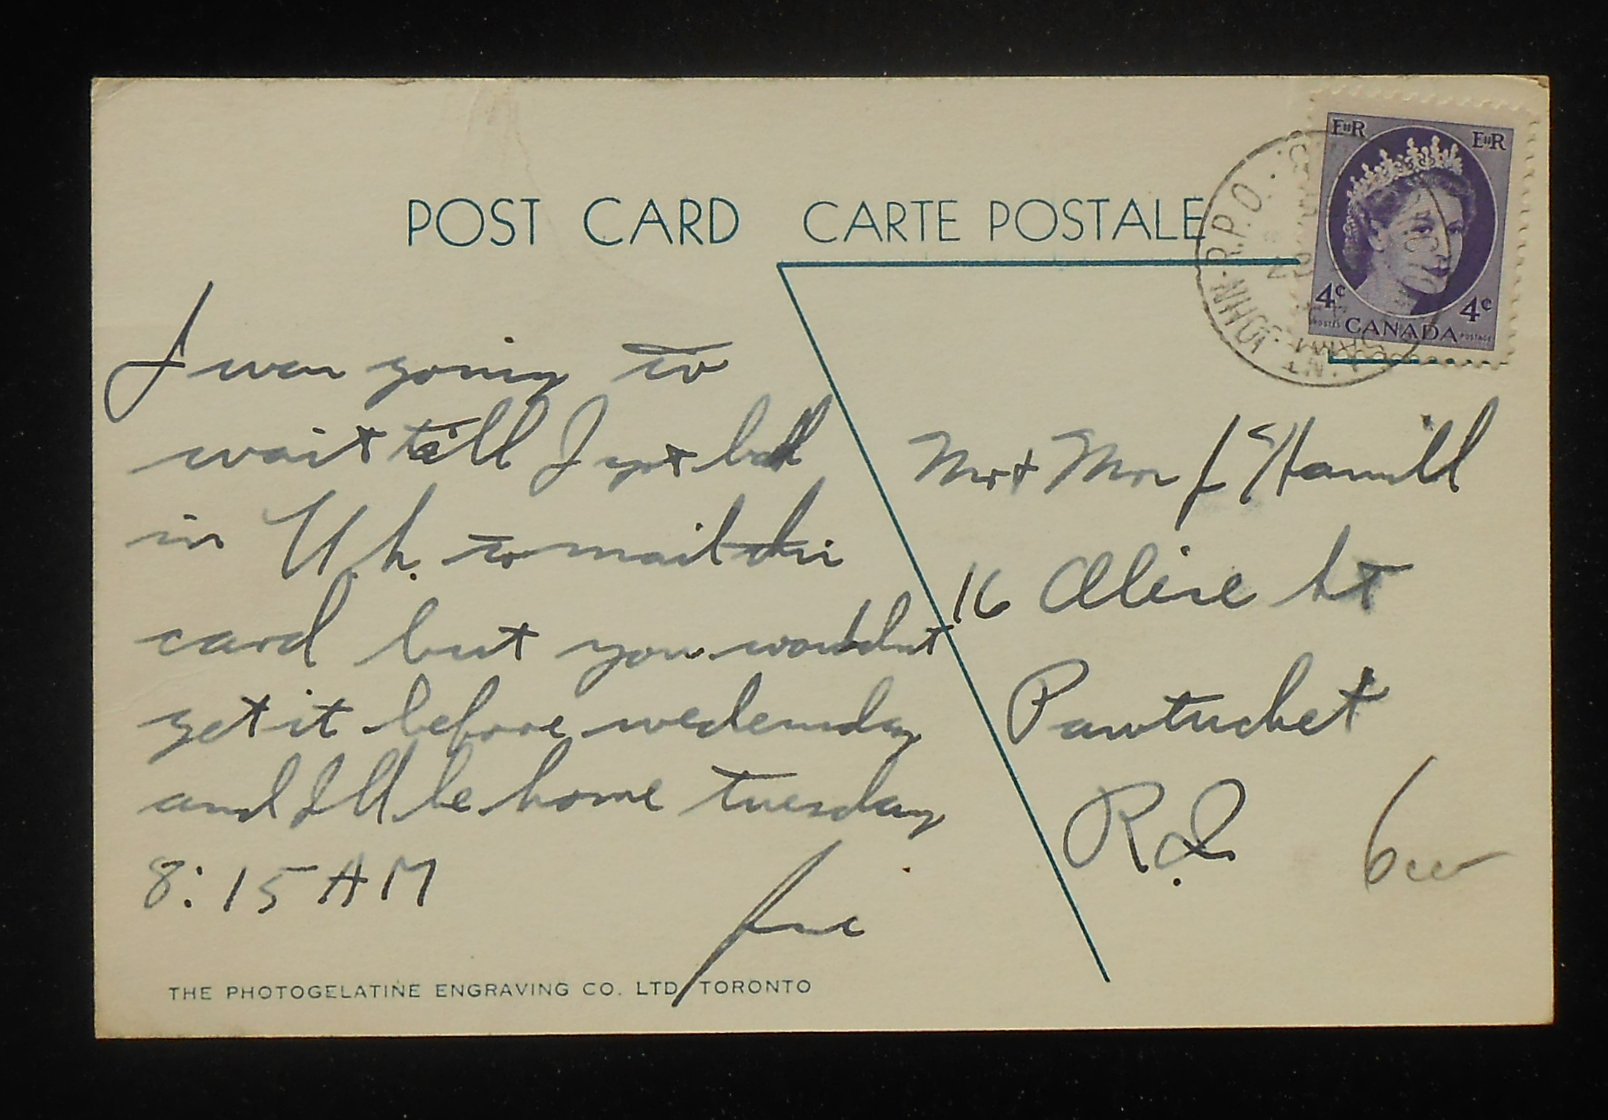 POST CARD CARTE POSTALE
EIIR EIIR
4¢ 4¢
POSTES CANADA POSTAGE
JOHN. R.P.O.
I was going to
wait till I got back
in U.S. to mail this
card but you wouldnt
get it before wedensday
and I'll be home tuesday
8:15 AM
Mr + Mrs J Hamill
16 Alice St
Pawtucket
R.I.
THE PHOTOGELATINE ENGRAVING CO. LTD. TORONTO